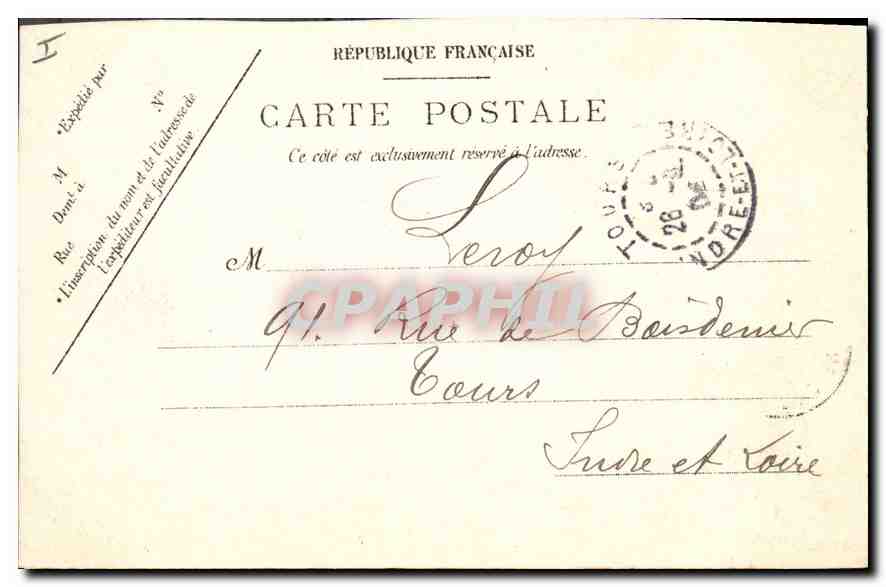 I
RÉPUBLIQUE FRANÇAISE
CARTE POSTALE
Ce côté est exclusivement réservé à l'adresse.
• Expédié par
M
Demt à
Rue N°
• L'inscription du nom et de l'adresse de
l'expéditeur est facultative
TOURS
INDRE-ET-L
26
M Leroy
91. Rue de Boisdenier
Tours
Indre et Loire
CPAPHIL